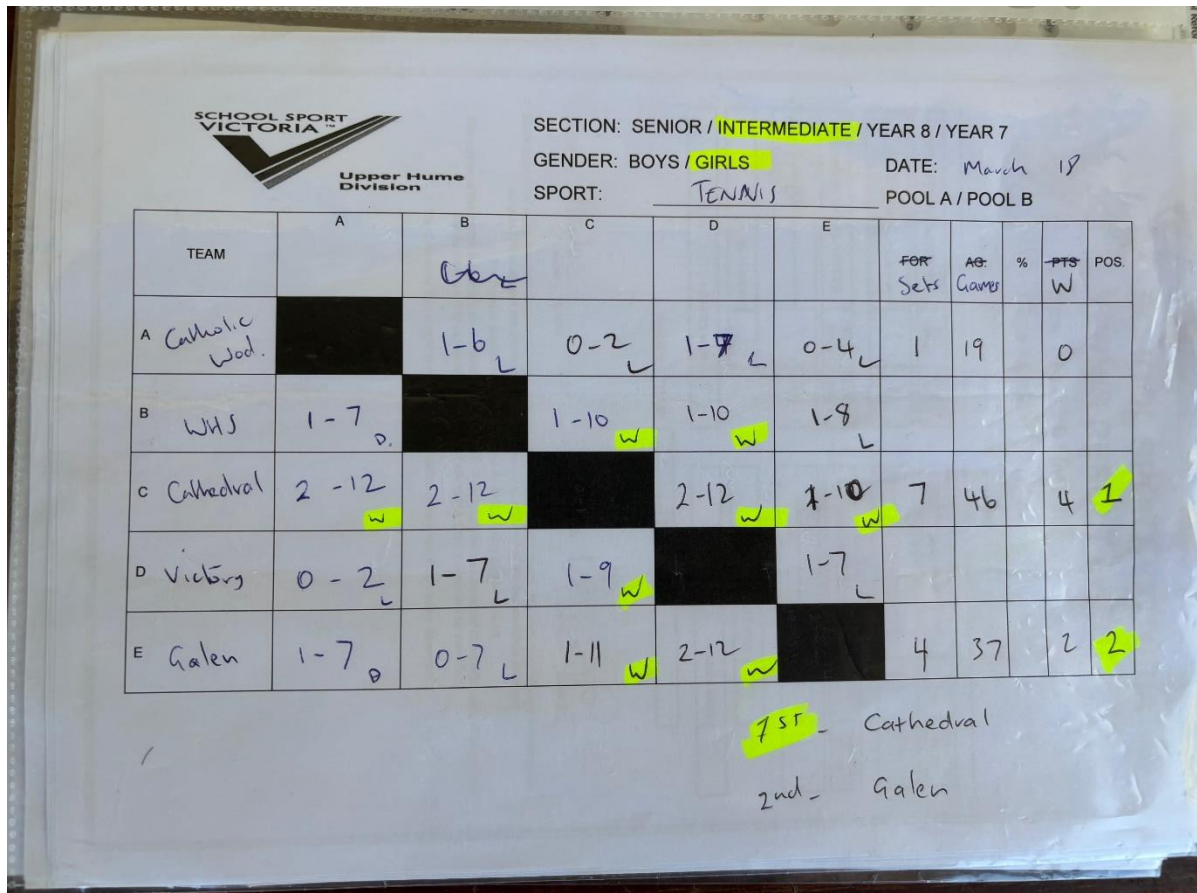 SCHOOL SPORT
VICTORIA ™
Upper Hume
Division
SECTION: SENIOR / INTERMEDIATE / YEAR 8 / YEAR 7
GENDER: BOYS / GIRLS DATE: March 18
SPORT: TENNIS POOL A / POOL B
TEAM A B C D E FOR AG. % PTS POS.
Sets Games W
A Catholic Wod. 1-6 L 0-2 L 1-7 L 0-4 L 1 19 0
B WHS 1-7 D. 1-10 W 1-10 W 1-8 L
C Cathedral 2-12 W 2-12 W 2-12 W 1-10 W 7 46 4 1
D Victory 0-2 L 1-7 L 1-9 W 1-7 L
E Galen 1-7 D 0-7 L 1-11 W 2-12 W 4 37 2 2
1ST - Cathedral
2nd - Galen